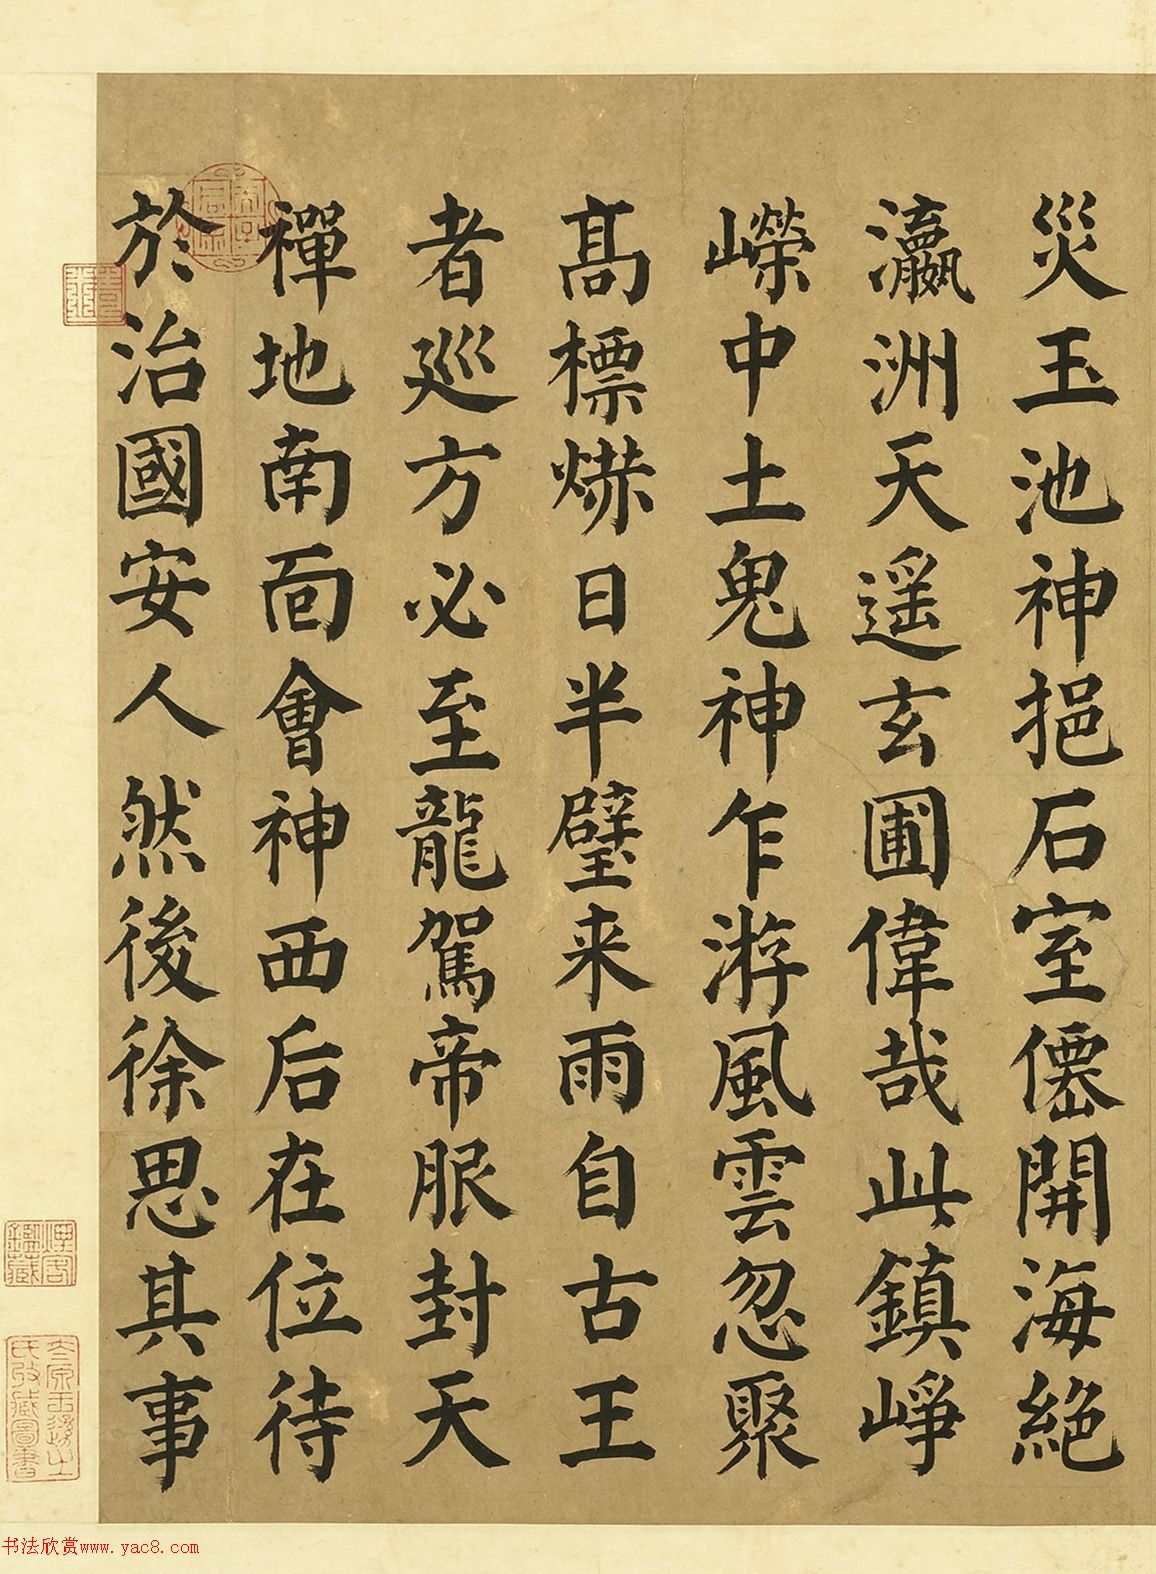 災玉池神挹石室僊開海絶
瀛洲天遥玄圃偉哉此鎮崢
嶸中土鬼神乍游風雲忽聚
髙標爀日半壁来雨自古王
者巡方必至龍駕帝服封天
禪地南面會神西后在位待
於治國安人然後徐思其事
书法欣赏www.yac8.com